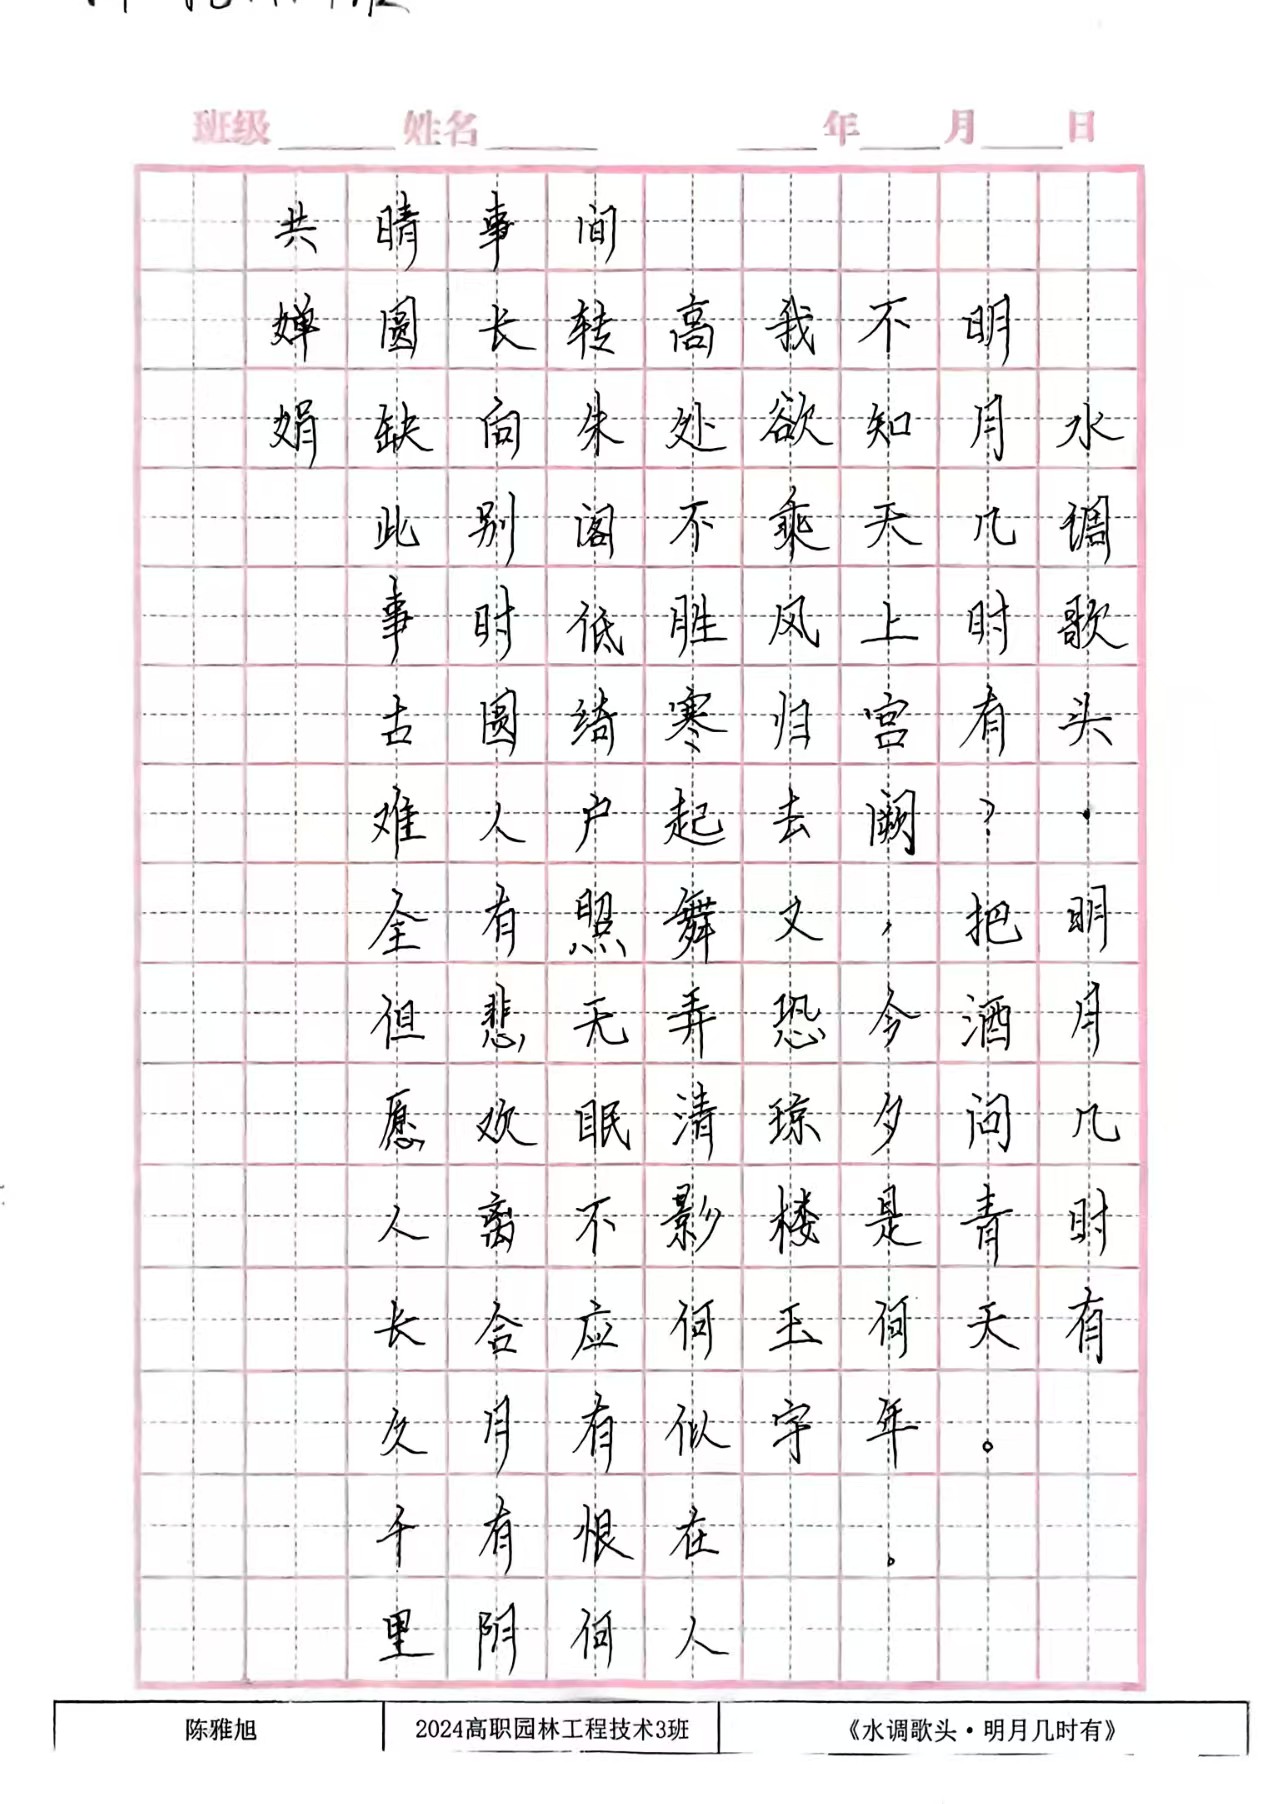 班级 姓名 年 月 日
水调歌头·明月几时有
明月几时有?把酒问青天。
不知天上宫阙,今夕是何年。
我欲乘风归去又恐琼楼玉宇
高处不胜寒起舞弄清影何似在人
间转朱阁低绮户照无眠不应有恨何
事长向别时圆人有悲欢离合月有阴
晴圆缺此事古难全但愿人长久千里
共婵娟
陈雅旭
2024高职园林工程技术3班
《水调歌头·明月几时有》